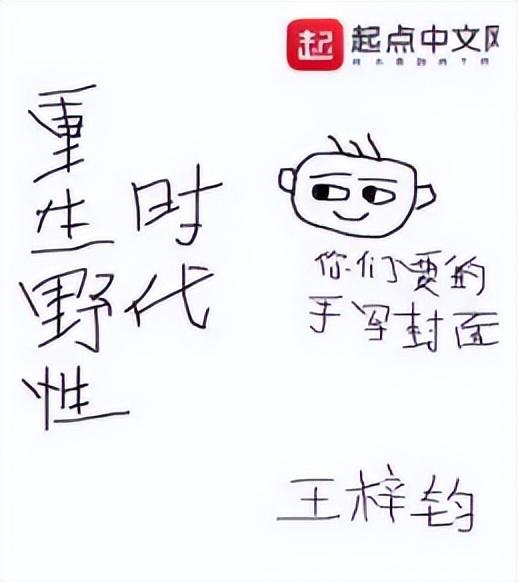 起 起点中文网
重生野性
时代
你们要的
手写封面
王梓钧